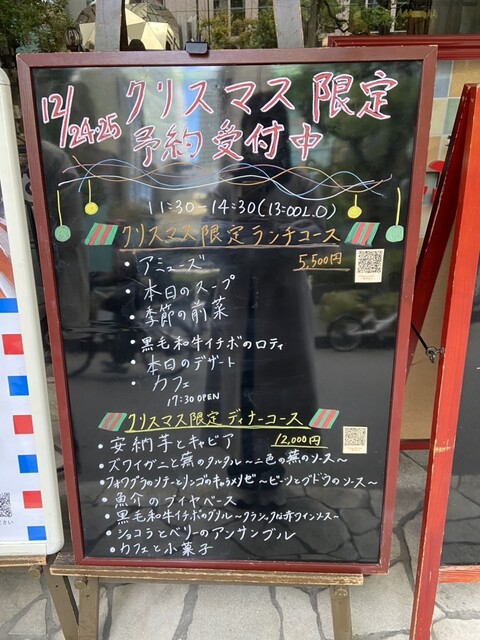 12/24・25
クリスマス限定
予約受付中
11:30-14:30(13:00L.O)
クリスマス限定ランチコース
5,500円
・アミューズ
・本日のスープ
・季節の前菜
・黒毛和牛イチボのロティ
・本日のデザート
・カフェ
17:30 OPEN
クリスマス限定ディナーコース
12,000円
・安納芋とキャビア
・ズワイガニと蕪のタルタル〜二色の蕪のソース〜
・フォワグラのソテーとリンゴのキャラメリゼ〜ビーツとブドウのソース〜
・魚介のブイヤベース
・黒毛和牛イチボのグリル〜クラシックな赤ワインソース〜
・ショコラとベリーのアンサンブル
・カフェと小菓子